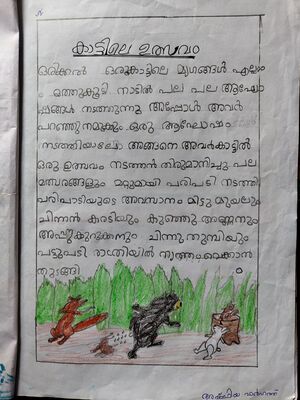 കാട്ടിലെ ഉത്സവം
ഒരിക്കൽ ഒരുകാട്ടിലെ മൃഗങ്ങൾ എല്ലാ
ം ഒത്തുകൂടി നാടിൽ പല പല ആഘോ
ഷങ്ങൾ നടത്തുന്നു അപ്പോൾ അവർ
പറഞ്ഞു നമുക്കും ഒരു ആഘോഷം
നടത്തിയാലോ അങ്ങനെ അവർകാട്ടിൽ
ഒരു ഉത്സവം നടത്തൻ തിരുമാനിച്ചു പല
മത്സരങ്ങളും മറ്റുമായി പരിപടി നടത്തി
പരിപാടിയുടെ അവസാനം മിട്ടു മുയലും
ചിന്നൻ കരടിയും കുഞ്ഞു അണ്ണനും
അപ്പുകുറുക്കനും ചിന്നു തുമ്പിയും
പട്ടുപടി രാത്രിയിൽ നൃത്തംവെക്കാൻ
തുടങ്ങി